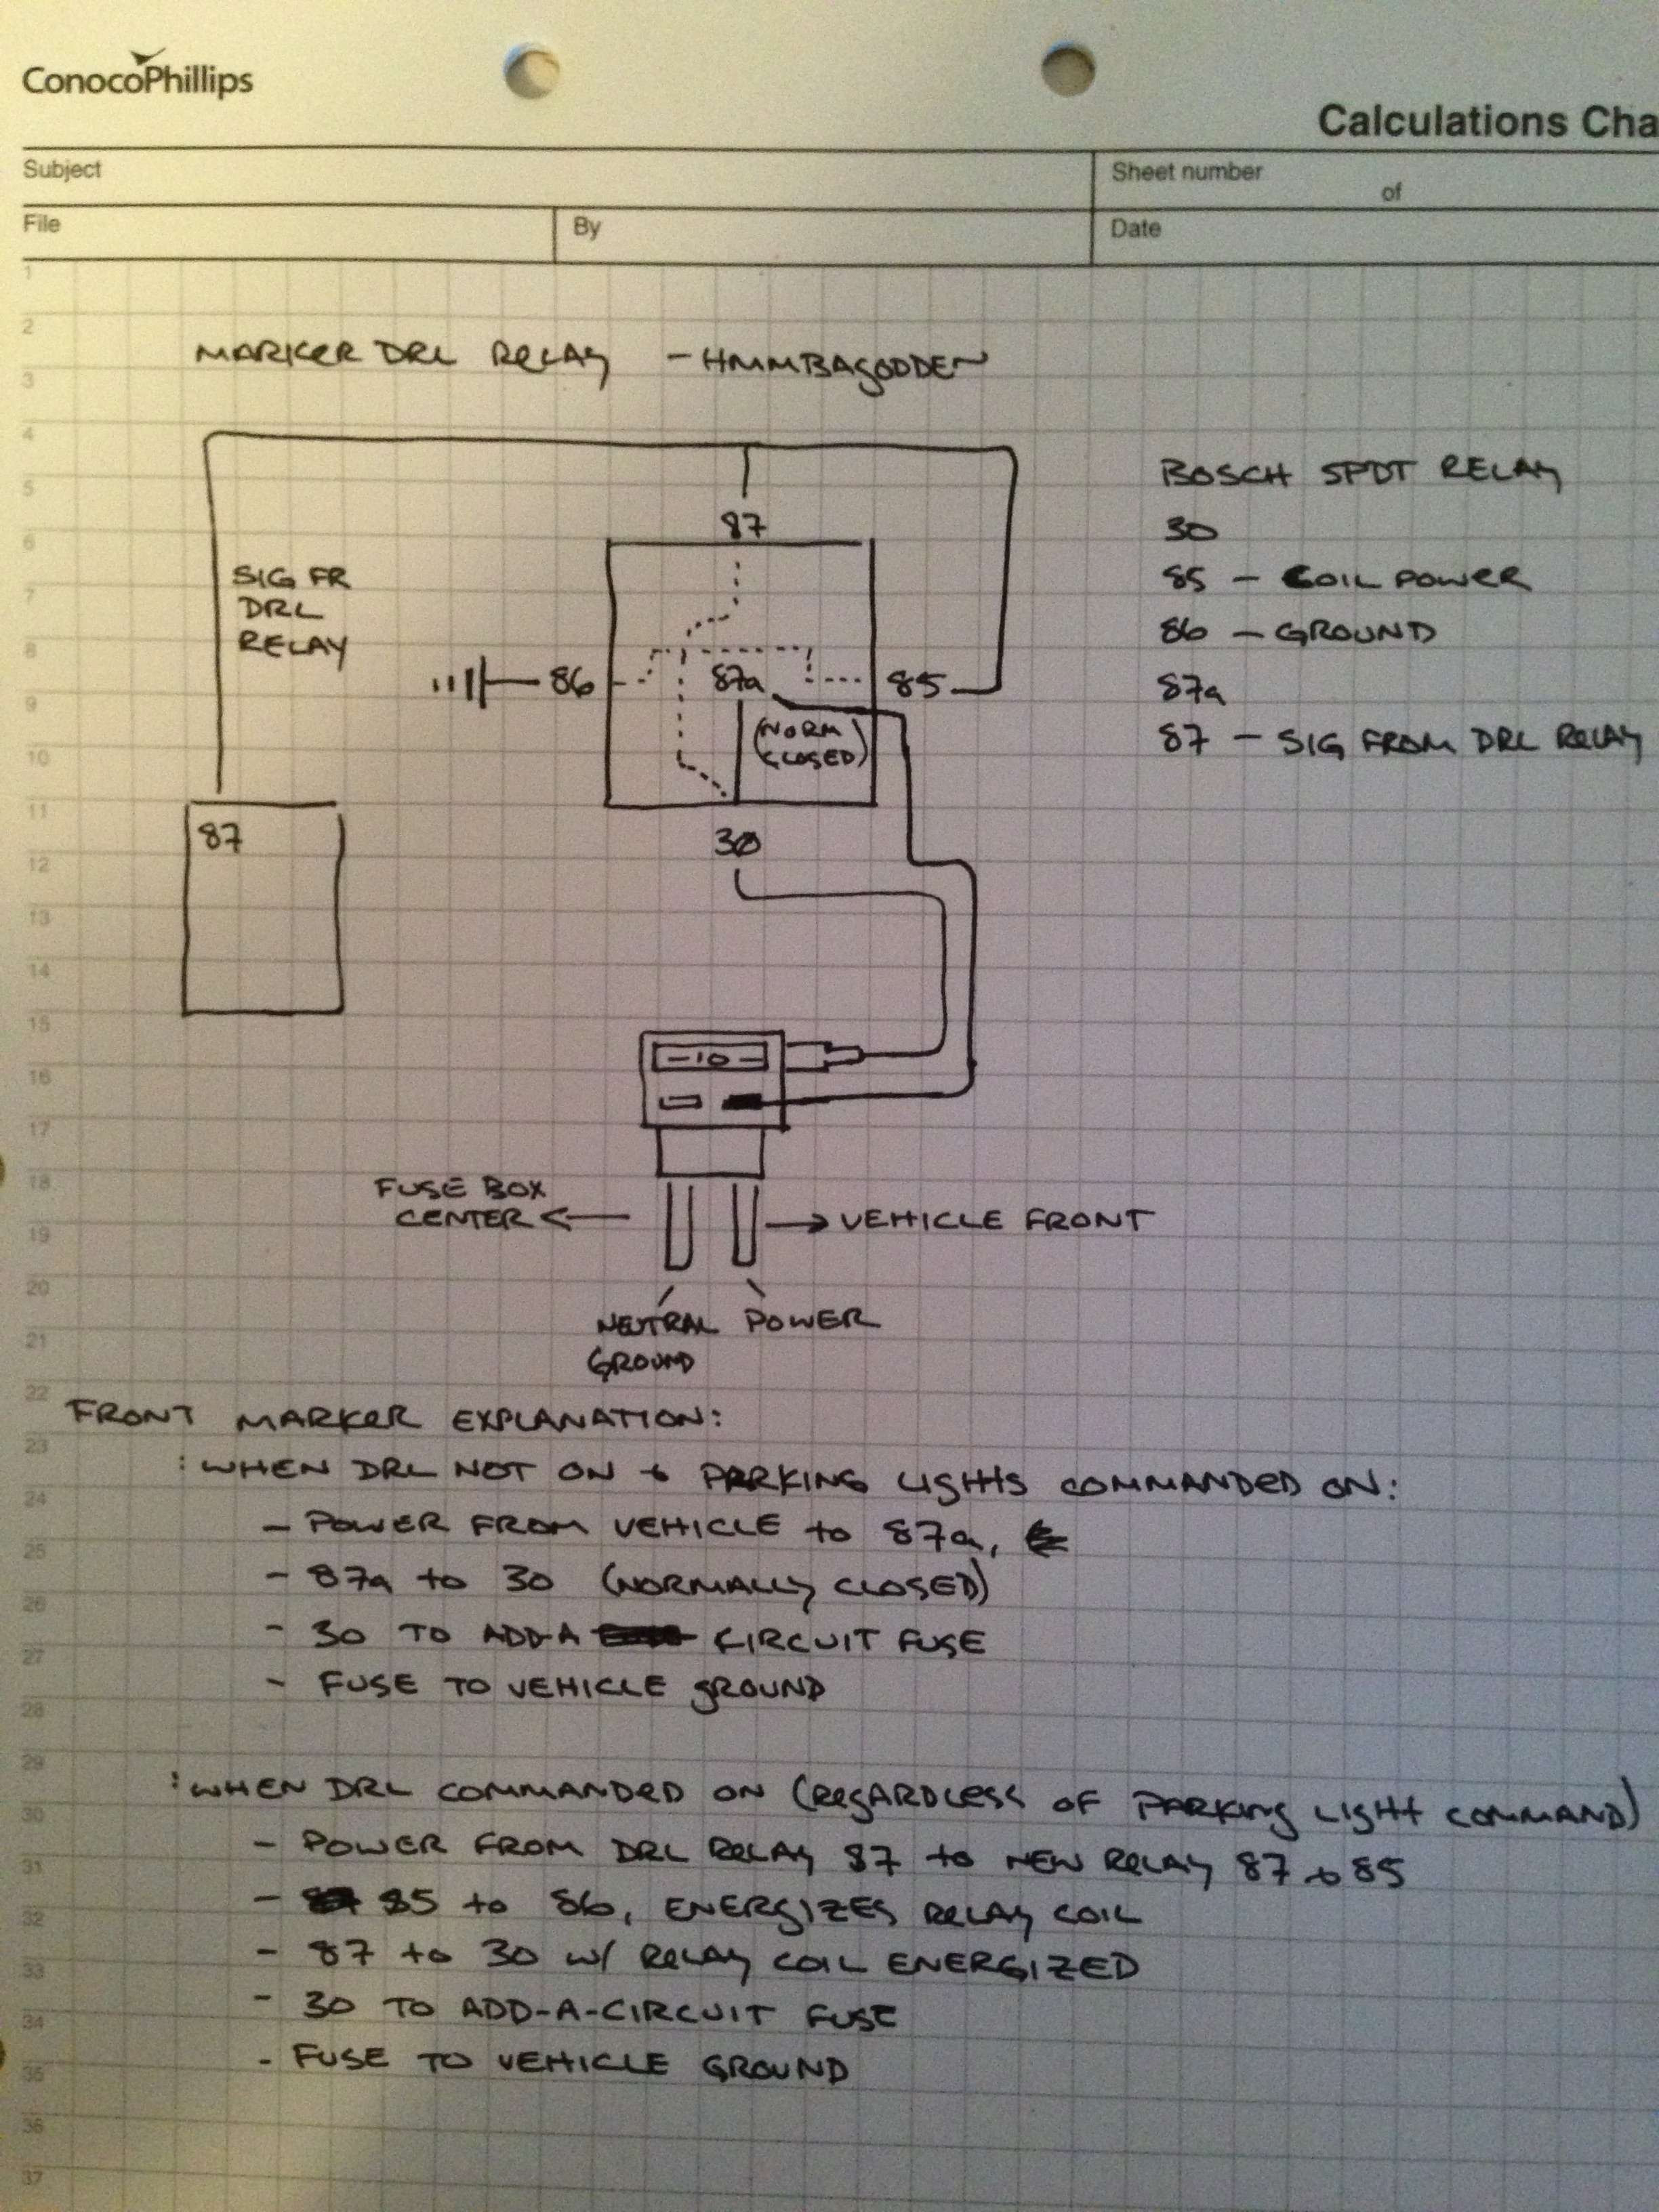 ConocoPhillips
Calculations Cha
Subject
Sheet number
of
File
By
Date
1
2
3
4
5
6
7
8
9
10
11
12
13
14
15
16
17
18
19
20
21
22
23
24
25
26
27
28
29
30
31
32
33
34
35
36
37
MARKER DRL RELAY - HMMBAGODDEN
BOSCH SPDT RELAY
30
85 - COIL POWER
86 - GROUND
87a
87 - SIG FROM DRL RELAY
SIG FR
DRL
RELAY
87
86
87a
85
(NORM
CLOSED)
30
87
-10-
FUSE BOX
CENTER
VEHICLE FRONT
NEUTRAL
GROUND
POWER
FRONT MARKER EXPLANATION:
: WHEN DRL NOT ON + PARKING LIGHTS COMMANDED ON:
- POWER FROM VEHICLE to 87a,
- 87a to 30 (NORMALLY CLOSED)
- 30 TO ADD-A CIRCUIT FUSE
- FUSE TO VEHICLE GROUND
: WHEN DRL COMMANDED ON (REGARDLESS OF PARKING LIGHT COMMAND)
- POWER FROM DRL RELAY 87 to NEW RELAY 87 + 85
- 85 to 86, ENERGIZES RELAY COIL
- 87 to 30 w/ RELAY COIL ENERGIZED
- 30 TO ADD-A-CIRCUIT FUSE
- FUSE TO VEHICLE GROUND